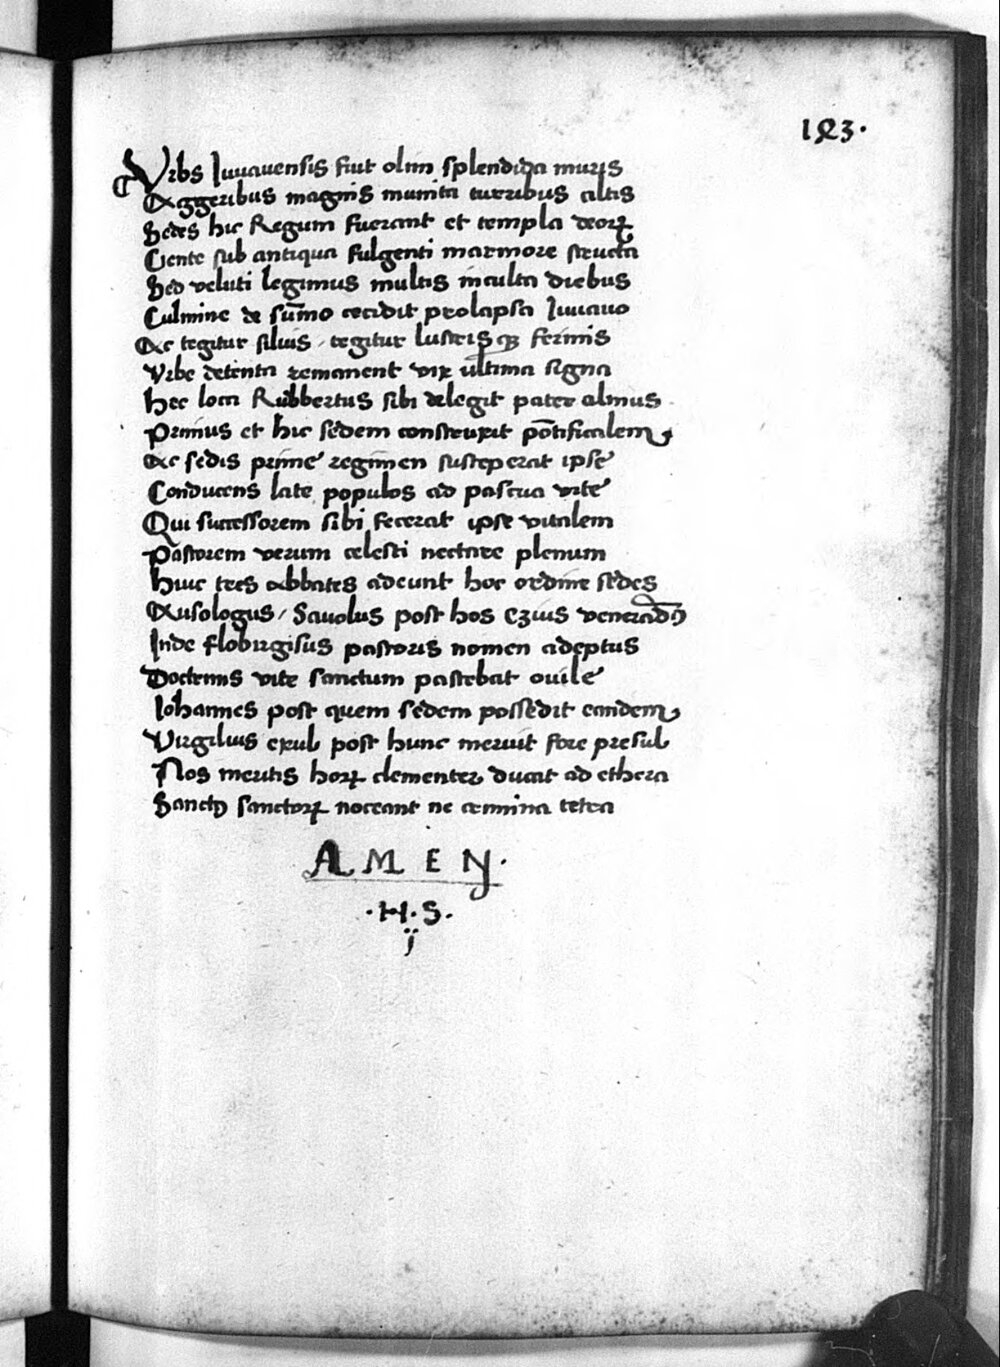 183.
Vrbs Iuuauensis fuit olim splendida muris
Aggeribus magnis munita turribus altis
Sedes hic Regum fuerant et templa deoꝝ
Gente sub antiqua fulgenti marmore structa
Sed veluti legimus multis inculta diebus
Culmine de sūmo cecidit prolapsa Iuuauo
Ac tegitur siluis / tegitur lustrisqꝫ ferinis
Vrbe detenta remanent vix ultima signa
Hec loca Rudbertus sibi delegit pater almus
Primus et hic sedem construxit pōtificalem
Ac sedis prime regimen susceperat ipse
Conducens late populos ad pascua vite
Qui successorem sibi fecerat ipse vitalem
Pastorem verum celesti nectare plenum
Huic tres abbates aderunt hoc ordine sedes
Ausologus / Sauolus post hos Ezius venerādꝰ
Inde flobirgisus pastoris nomen adeptus
Doctrinis vite sanctum pascebat ouile
Iohannes post quem sedem possedit eandem
Virgilius exul post hunc meruit fore presul
Nos meritis hoꝝ clementer ducat ad ethera
Sanctꝰ sanctoꝝ noceant ne crimina tetra
AMEN.
.H.S.
ij